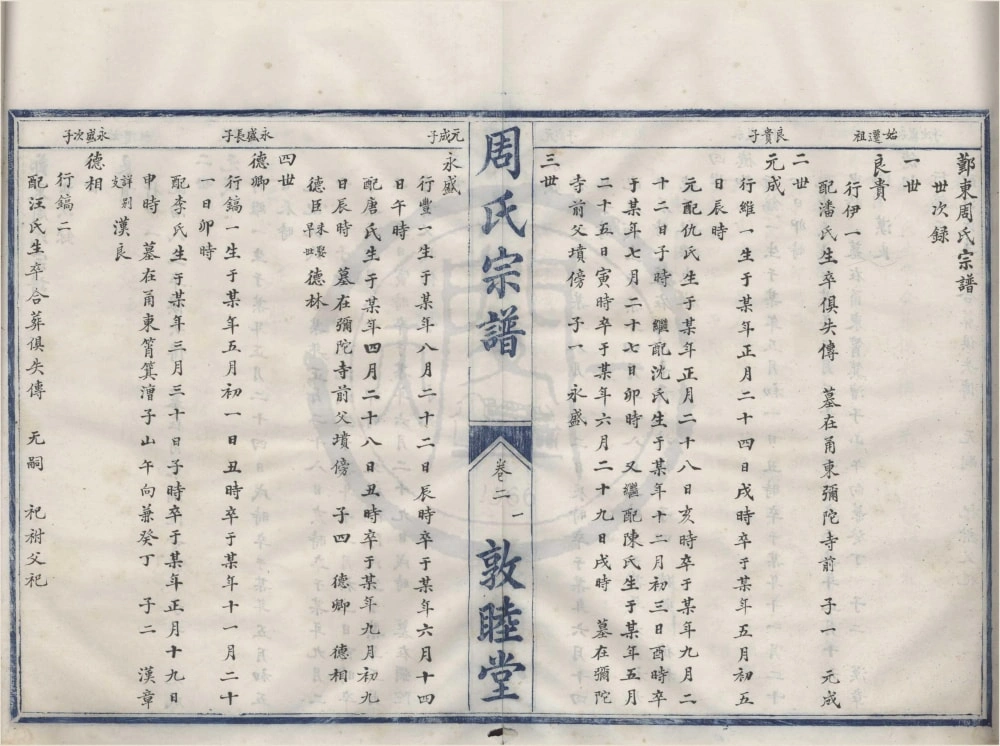 鄞東周氏宗譜
世次録
一世
始遷祖
良貴
行伊一
配潘氏生卒俱失傳　墓在甬東彌陀寺前　子一　元成
二世
良貴子
元成
行維一生于某年正月二十四日戌時卒于某年五月初五
日辰時
元配仇氏生于某年正月二十八日亥時卒于某年九月二
十二日子時　繼配沈氏生于某年十二月初三日酉時卒
于某年七月二十七日卯時　又繼配陳氏生于某年五月
二十五日寅時卒于某年六月二十九日戌時　墓在彌陀
寺前父墳傍　子一　永盛
三世
周氏宗譜
卷二
一
敦睦堂
元成子
永盛
行豐一生于某年八月二十二日辰時卒于某年六月十四
日午時
配唐氏生于某年四月二十八日丑時卒于某年九月初九
日辰時　墓在彌陀寺前父墳傍　子四　德卿　德相
德臣未娶早世　德林
四世
永盛長子
德卿
行鎬一生于某年五月初一日丑時卒于某年十一月二十
一日卯時
配李氏生于某年三月三十日子時卒于某年正月十九日
申時　墓在甬東筲箕漕子山午向兼癸丁　子二　漢章
詳別支　漢良
永盛次子
德相
行鎬二
配汪氏生卒合葬俱失傳　无嗣　祀祔父祀